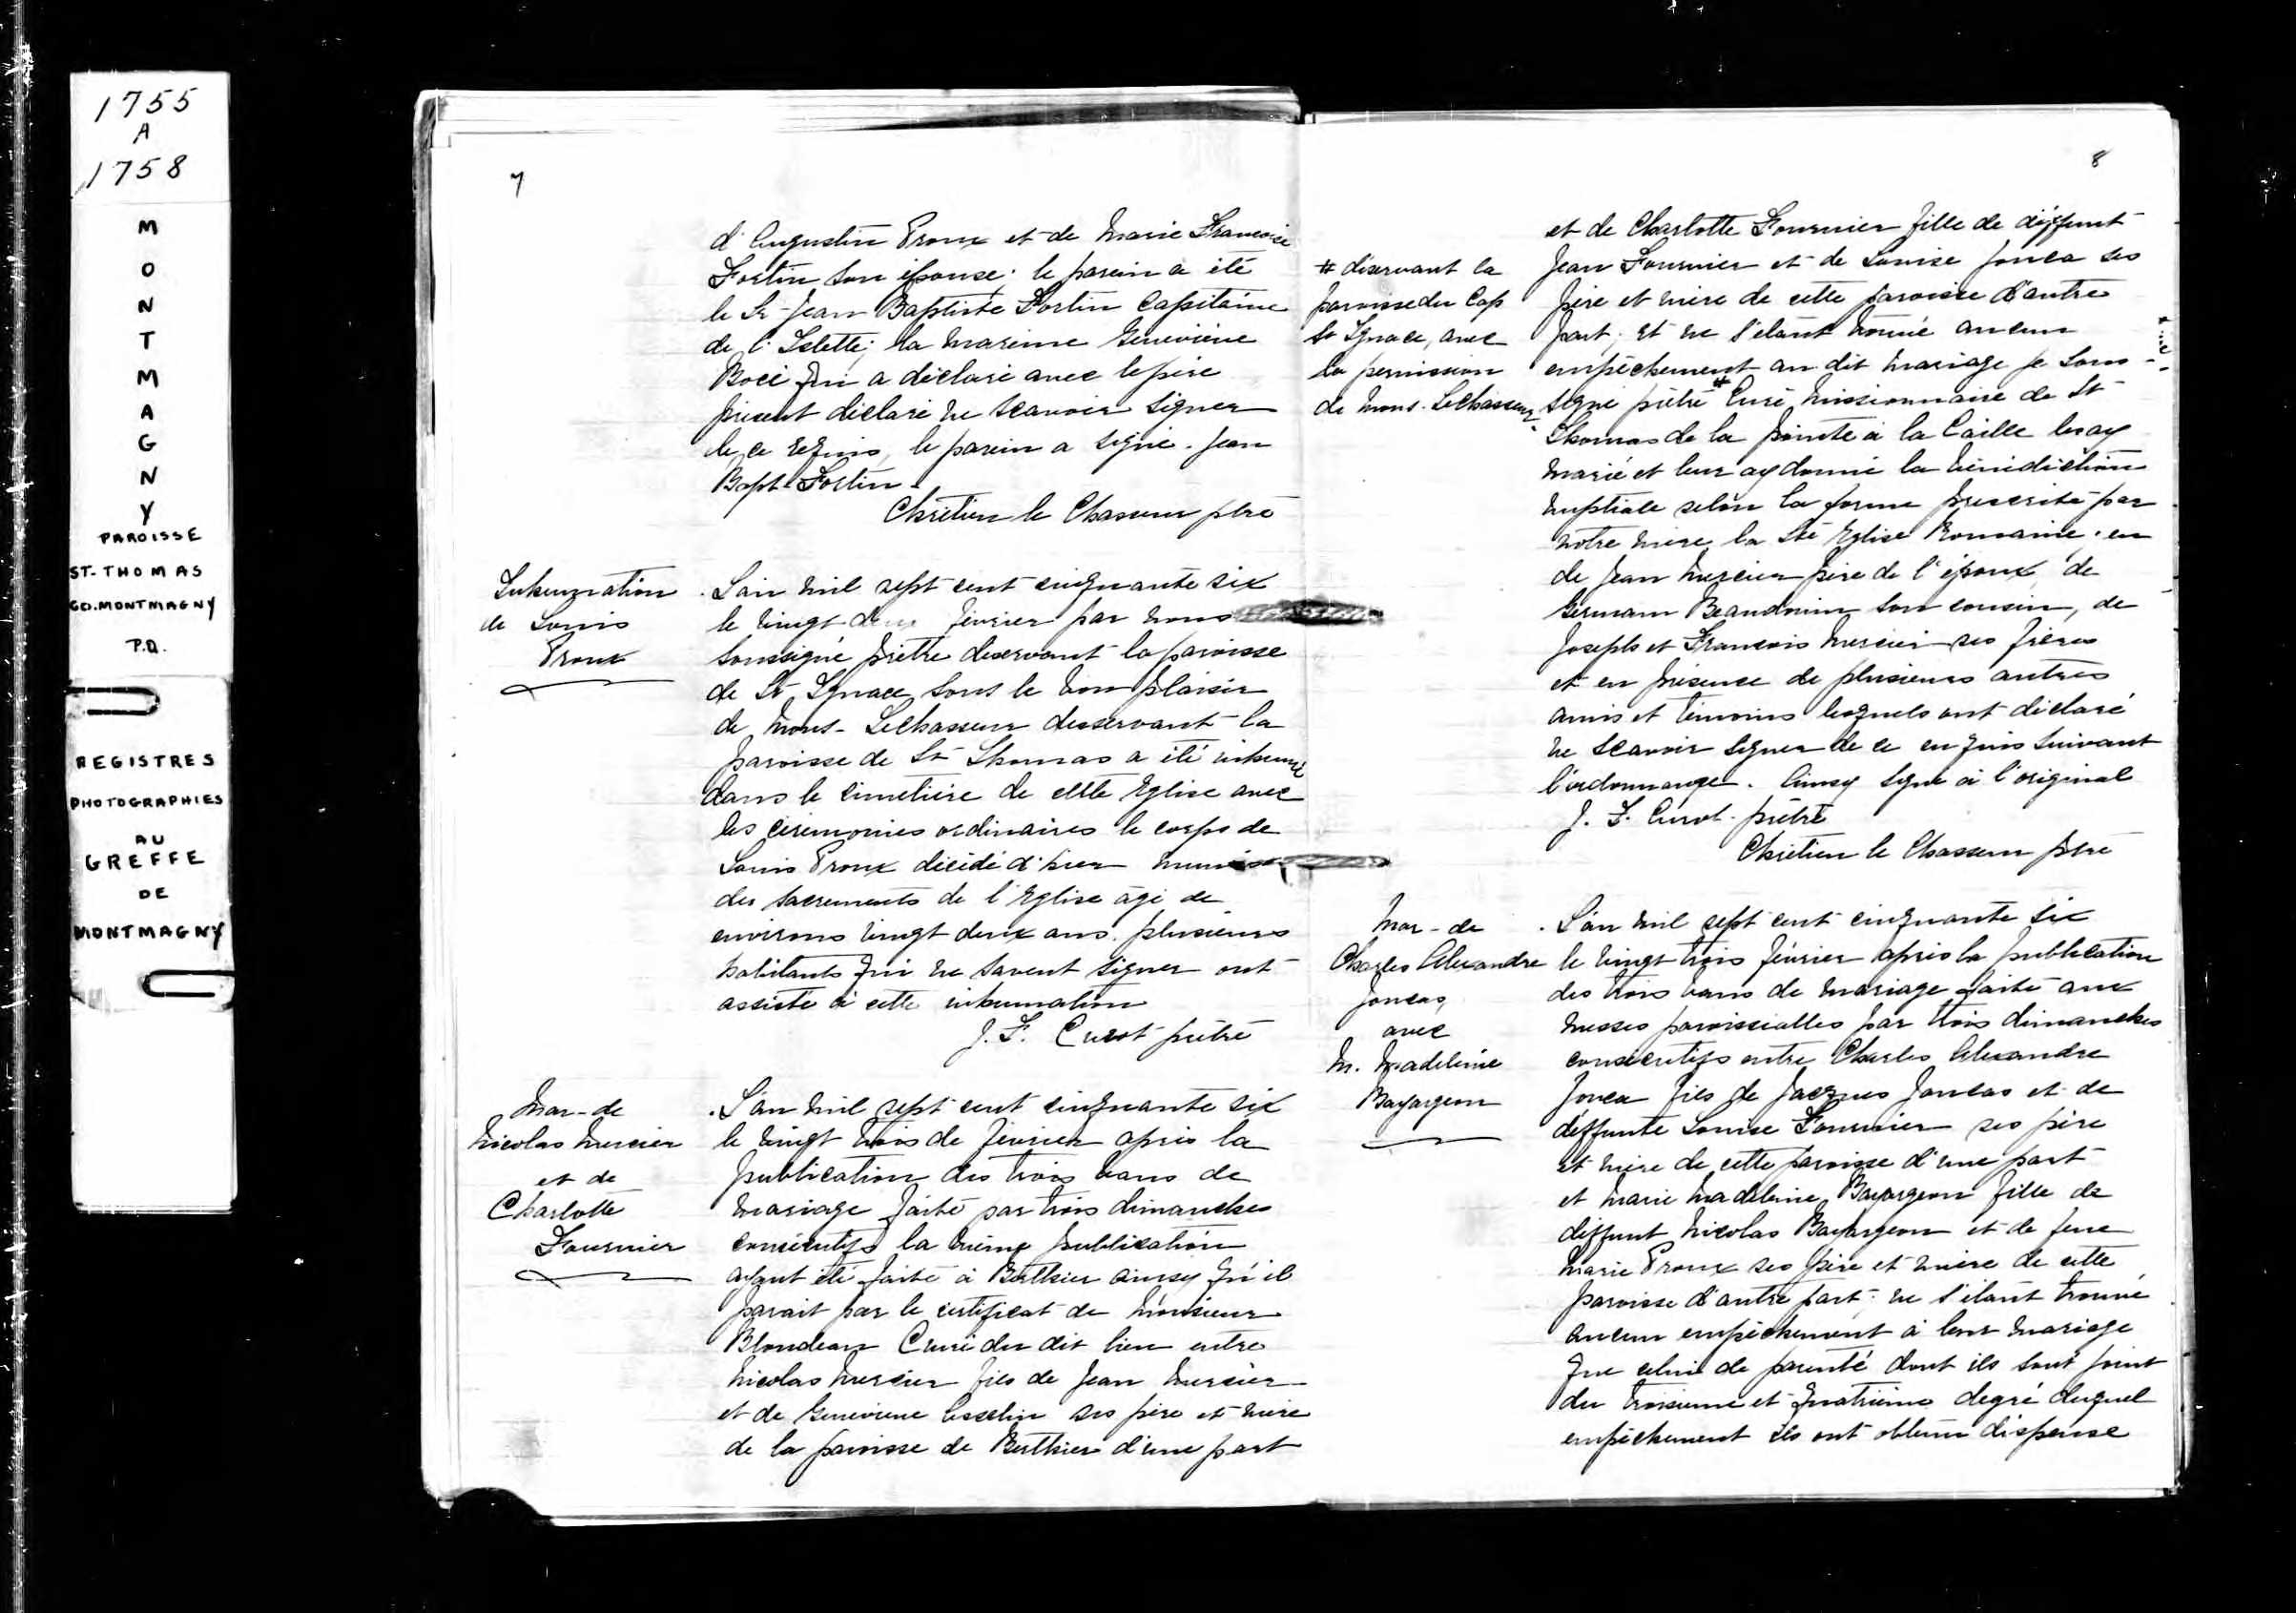 1755
A
1758
MONTMAGNY
PAROISSE
ST-THOMAS
CO. MONTMAGNY
P.Q.
REGISTRES
PHOTOGRAPHIES
AU
GREFFE
DE
MONTMAGNY
7
d'Augustin Proux et de Marie Francoise
Fortin son épouse; le parein a été
le Sr Jean Baptiste Fortin Capitaine
de l'Islette; la mareine Genevieve
Bocé qui a déclaré avec le père
present déclaré ne scavoir signer
de ce requis, le parein a signé. Jean
Bapt. Fortin.
Chretien le Chasseur ptre
Inhumation
de Louis
Proux
L'an mil sept cent cinquante six
le vingt deux février par nous
soussigné prêtre deservant la paroisse
de St Ignace sous le bon plaisir
de Mons. Lechasseur desservant la
paroisse de St Thomas a été inhumé
dans le cimetière de cette Eglise avec
les cérémonies ordinaires le corps de
Louis Proux décédé d'hier muni
des sacrements de l'Eglise âgé de
environs vingt deux ans. plusieurs
habitants qui ne savent signer ont
assisté à cette inhumation
J. F. Curot prêtre
Mar- de
Nicolas Mercier
et de
Charlotte
Fournier
L'an mil sept cent cinquante six
le vingt trois de février après la
publication des trois bans de
mariage faite par trois dimanches
consécutifs la même publication
ayant été faite à Berthier ainsy qu'il
parait par le certificat de Monsieur
Blondeau Curé du dit lieu entre
Nicolas Mercier fils de Jean Mercier
et de Genevieve Asselin ses père et mère
de la paroisse de Berthier d'une part
8
# déservant la
paroisse du Cap
St Ignace, avec
la permission
de Mons. Lechasseur
et de Charlotte Fournier fille de déffunt
Jean Fournier et de Louise Jonca ses
père et mère de cette paroisse d'autre
part; et ne s'etant trouvé aucun
empêchement au dit mariage je sous-
signe prêtre # Curé missionnaire de St
Thomas de la pointe à la Caille les ay
marié et leur ay donné la bénédiction
nuptiale selon la forme prescrite par
notre mère la Ste Eglise Romaine. en
de Jean Mercier père de l'époux de
Germain Beaudouin son cousin, de
Joseph et Francois Mercier ses frères
et en présence de plusieurs autres
amis et témoins lesquels ont déclaré
ne scavoir signer de ce enquis suivant
l'ordonnance. Ainsy signé à l'original
J. F. Curot prêtre
Chretien le Chasseur ptre
Mar- de
Charles Alexandre
Joncas,
avec
M. Madeleine
Bayargeon
L'an mil sept cent cinquante six
le vingt trois février après la publication
des trois bans de mariage faite aux
messes paroissialles par trois dimanches
consécutifs entre Charles Alexandre
Jonca fils de Jacques Joncas et de
déffunte Louise Fournier ses père
et mère de cette paroisse d'une part
et Marie Madeleine Bayargeon fille de
déffunt Nicolas Bayargeon et de feue
Marie Proux ses père et mère de cette
paroisse d'autre part: ne s'étant trouvé
aucun empêchement à leur mariage
que celui de parenté dont ils sont joint
du troisieme et quatrième degré duquel
empêchement ils ont obtenu dispense